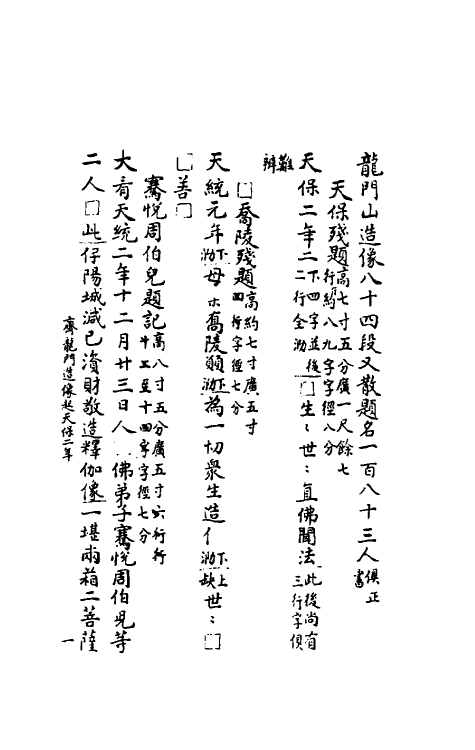 龍門山造像八十四段又散題名一百八十三人俱正書
天保殘題高七寸五分廣一尺餘七行行約八九字字徑八分
天保二年二下四字並後二行全泐□生〻世〻直佛聞法此後尚有三行字俱難辨
□喬陵殘題高約七寸廣五寸四行字徑七分
天統元年下泐母 喬陵願下泐為一切衆生造 下泐上缺世〻□
□善□
騫悅周伯兒題記高八寸五分廣五寸六行行廿五至十四字字徑七分
大齊天統二年十二月廿三日人 佛弟子騫悅周伯児等
二人□此仔陽城減已濱財敬造釋伽像一堪兩葙二菩薩
齊龍門造像起天保二年
一